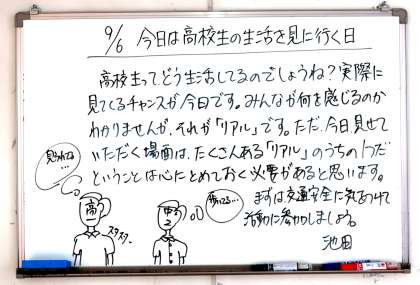 9/6 今日は高校生の生活を見に行く日
高校生ってどう生活してるのでしょうね?実際に
見てくるチャンスが今日です。みんなが何を感じるのか
わかりませんが、それが「リアル」です。ただ、今日、見せて
いただく場面は、たくさんある「リアル」のうちの1つだ
ということは心にとめておく必要があると思います。
まずは交通安全に気をつけて
活動に参加しましょう。
池田
見られてる…
高
スタスタ…
歩いてる…